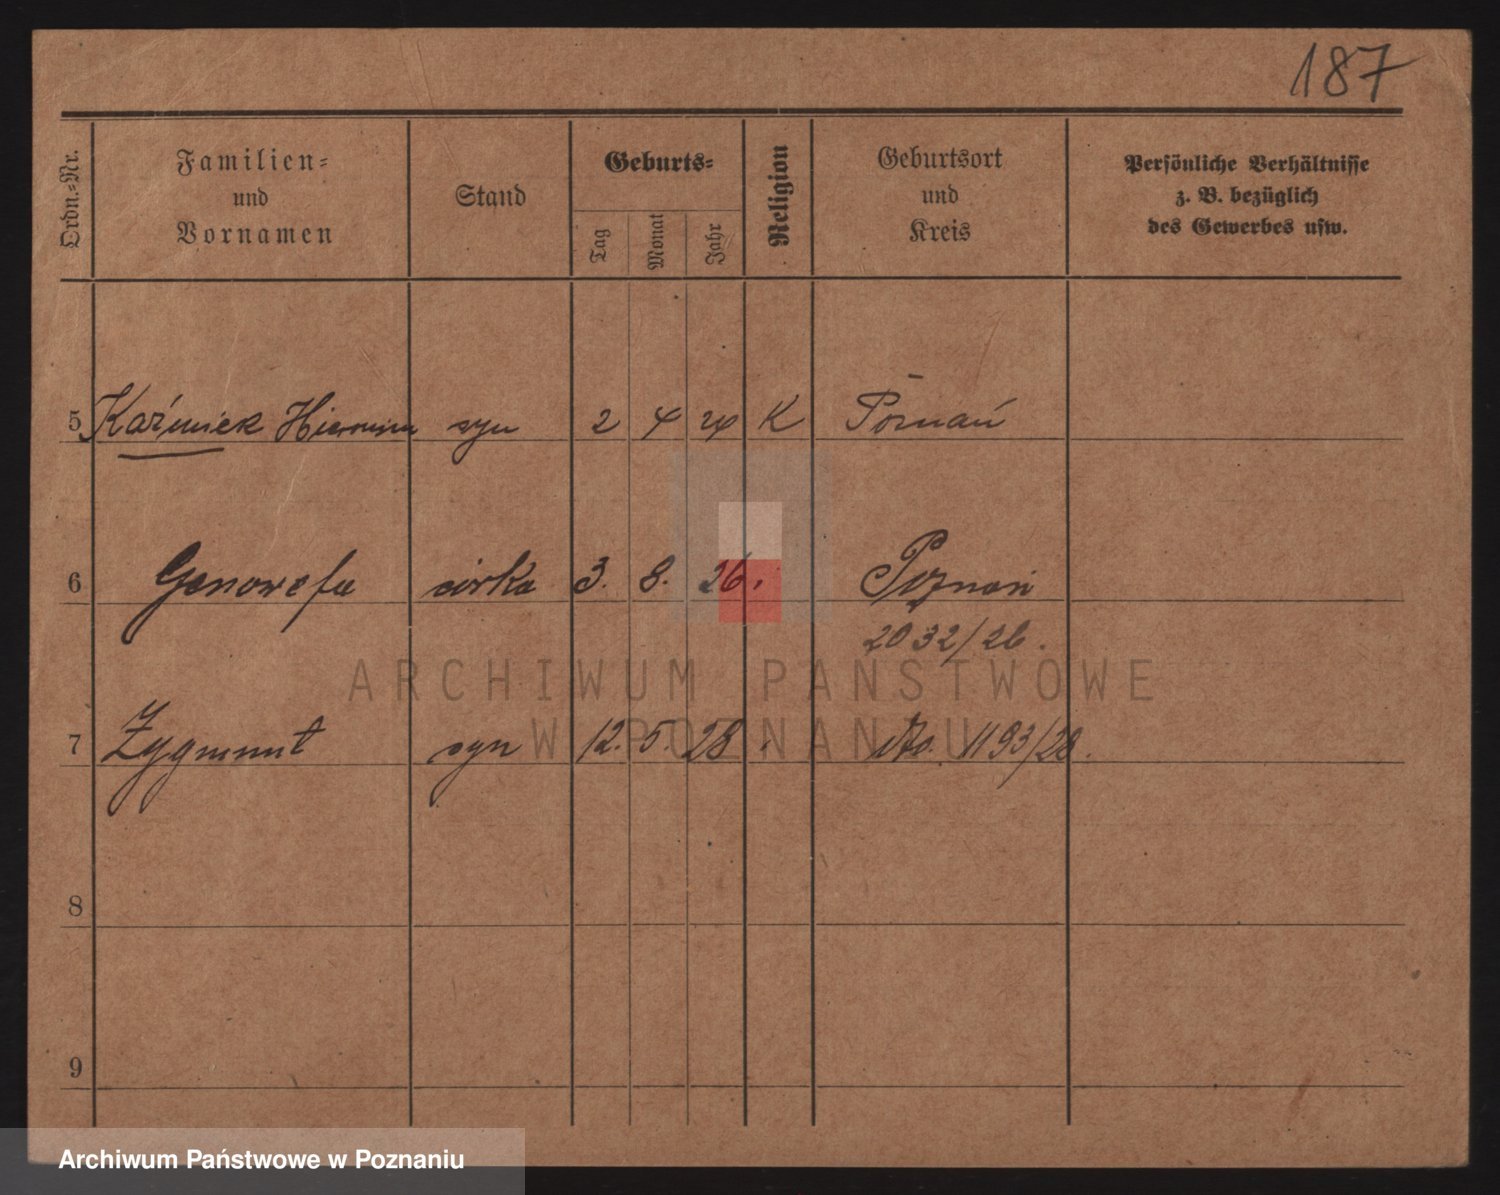 187
Ordn.=Nr.
Familien=
und
Vornamen
Stand
Geburts=
Tag
Monat
Jahr
Religion
Geburtsort
und
Kreis
Persönliche Verhältnisse
z. B. bezüglich
des Gewerbes usw.
5 Kaźmierz Hieronim syn 2 4 24 K Poznań
6 Genowefa córka 3. 8. 26. Poznań
2032/26.
7 Zygmunt syn 12. 5. 28 . No. 1193/28.
8
9
ARCHIWUM PAŃSTWOWE
W POZNANIU
Archiwum Państwowe w Poznaniu